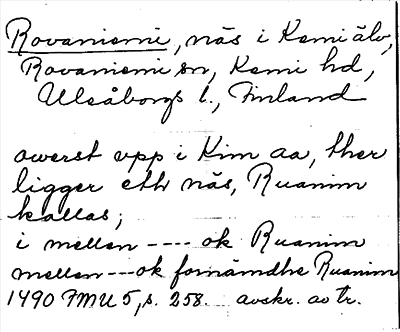 Rovaniemi, näs i Kemi älv,
Rovaniemi sn, Kemi hd,
Uleåborgs l., Finland
owerst vpp i Kim aa, ther
ligger eth näs, Ruanim
kallas;
i mellen ---- ok Ruanim
mellen---ok fornämdhe Ruanim
1490 FMU 5, s. 258. avskr. av tr.